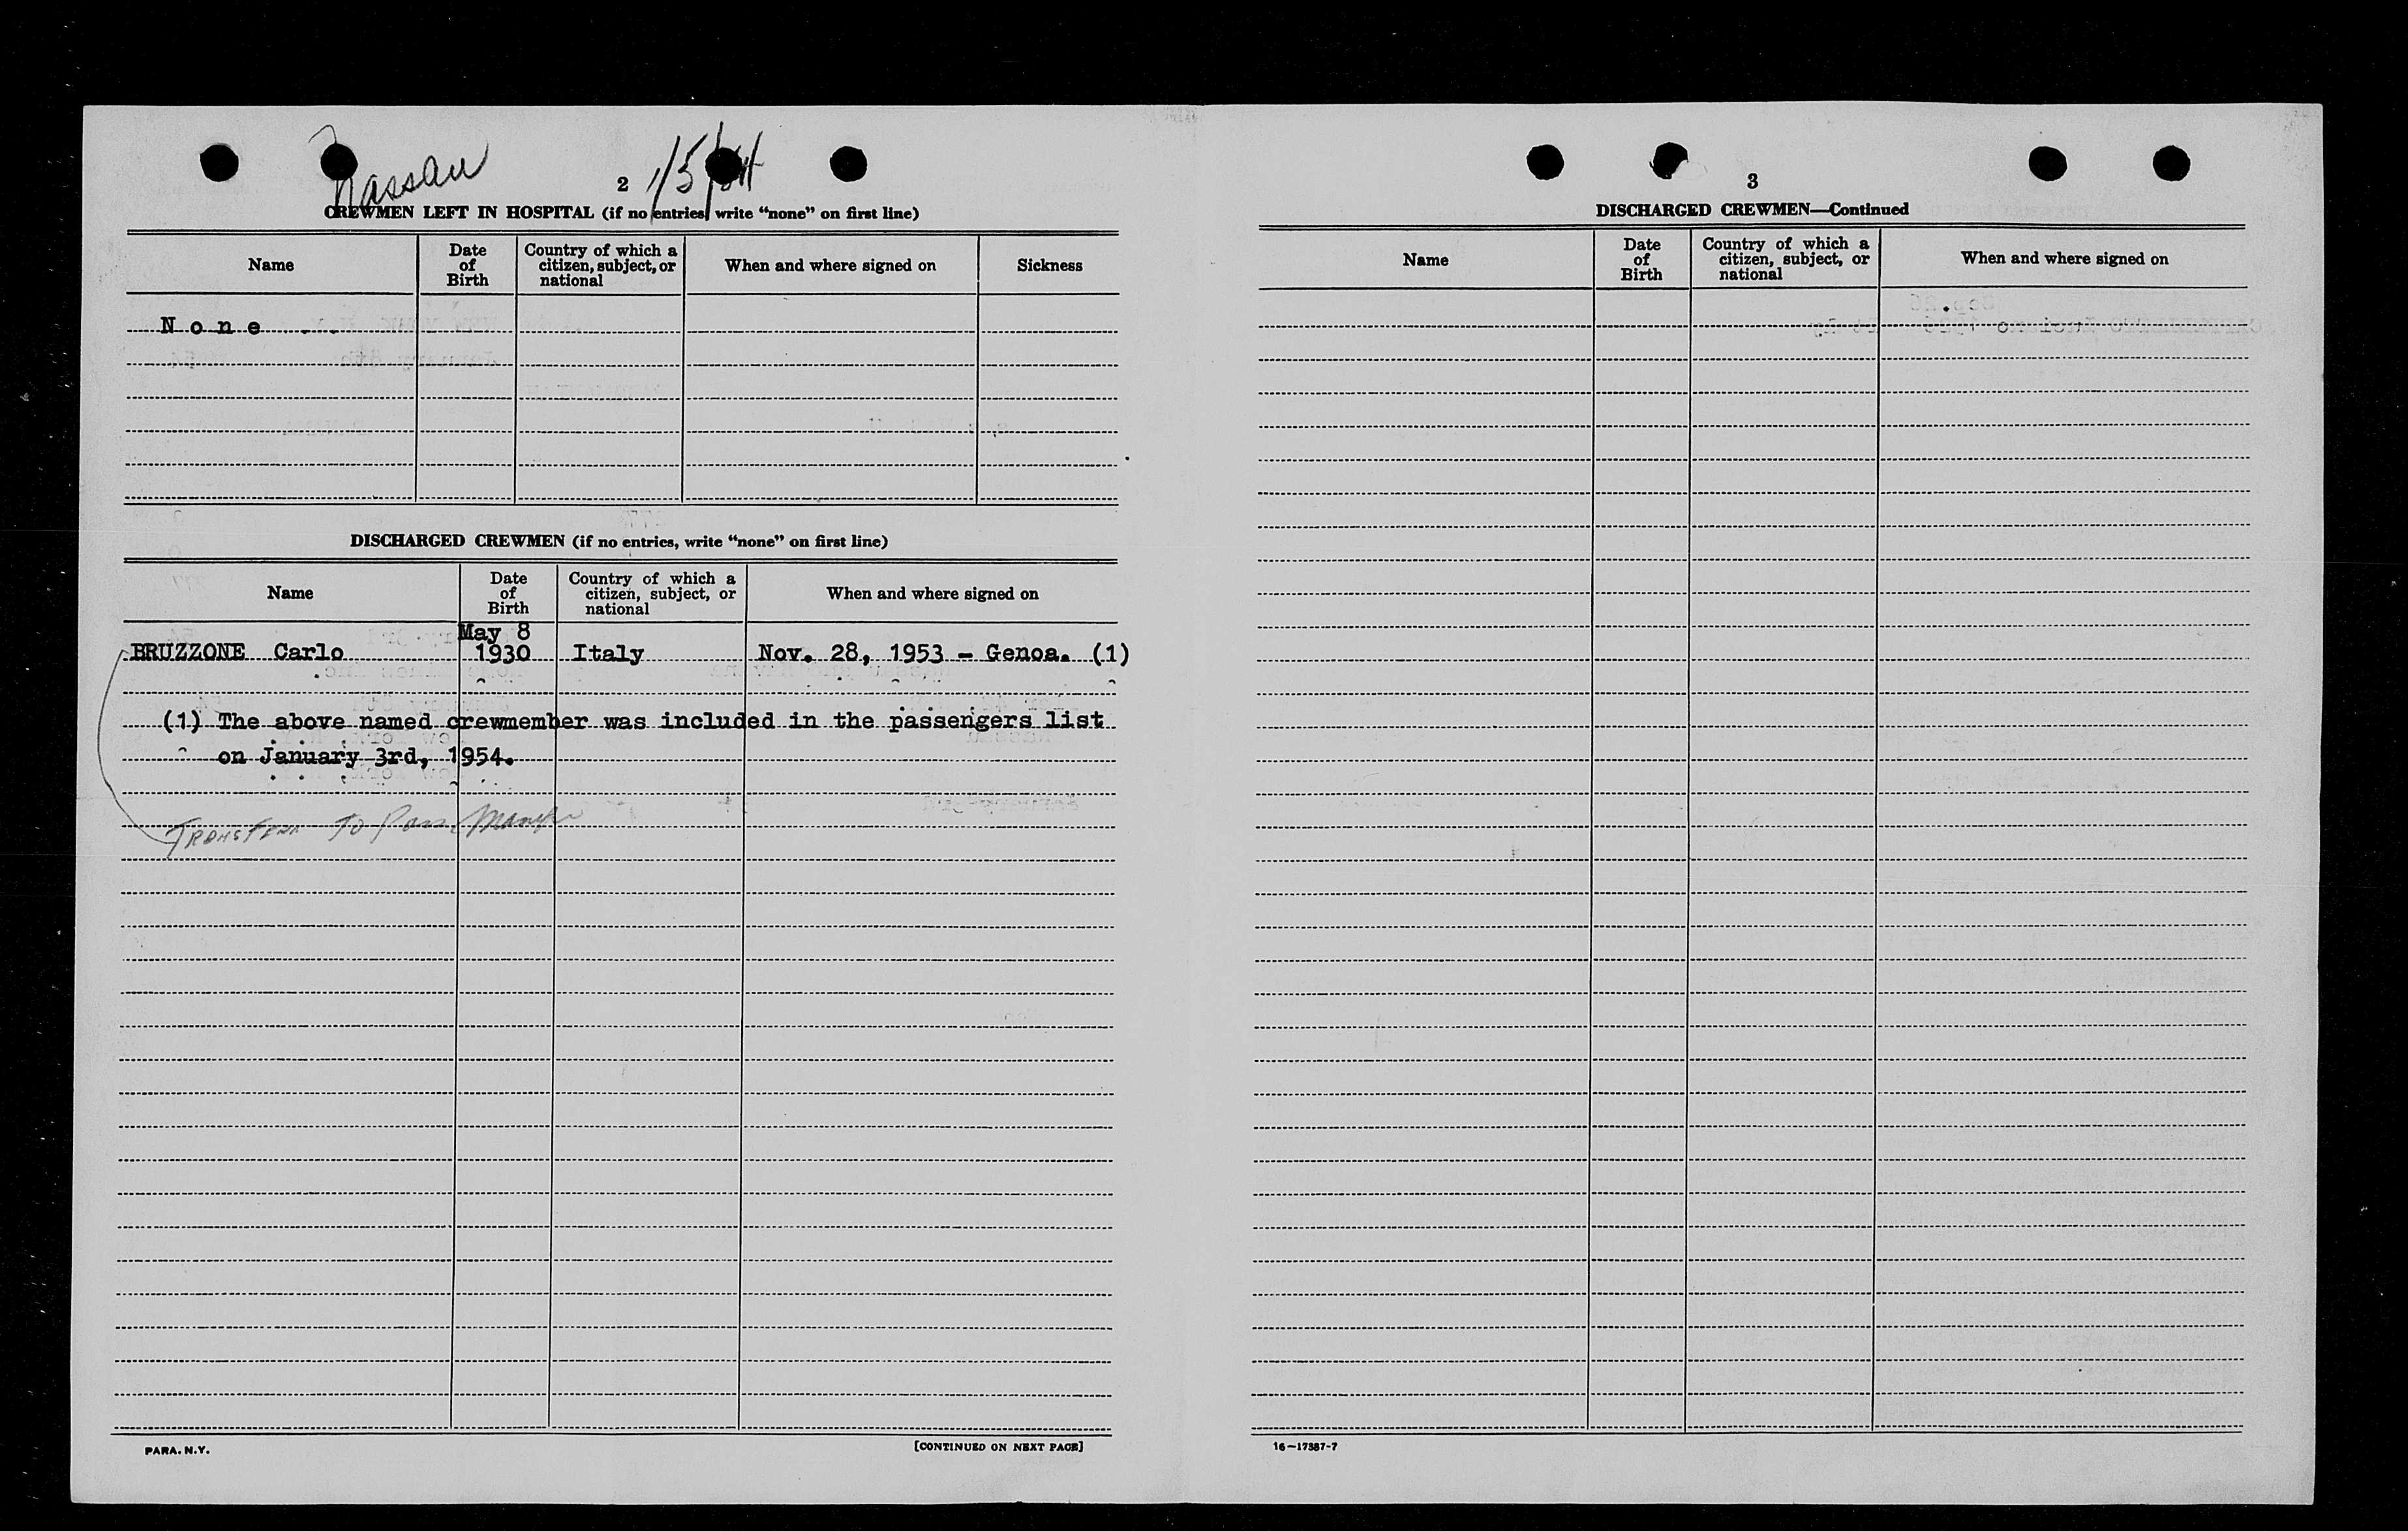 Nassau 1/5/54
2
CREWMEN LEFT IN HOSPITAL (if no entries, write "none" on first line)
Name
Date of Birth
Country of which a citizen, subject, or national
When and where signed on
Sickness
None
DISCHARGED CREWMEN (if no entries, write "none" on first line)
Name
Date of Birth
Country of which a citizen, subject, or national
When and where signed on
May 8
BRUZZONE Carlo 1930 Italy Nov. 28, 1953 - Genoa. (1)
(1) The above named crewmember was included in the passengers list
on January 3rd, 1954.
TRANSFER TO Pass Manif
PARA. N.Y.
[CONTINUED ON NEXT PAGE]
3
DISCHARGED CREWMEN—Continued
Name
Date of Birth
Country of which a citizen, subject, or national
When and where signed on
16—17387-7